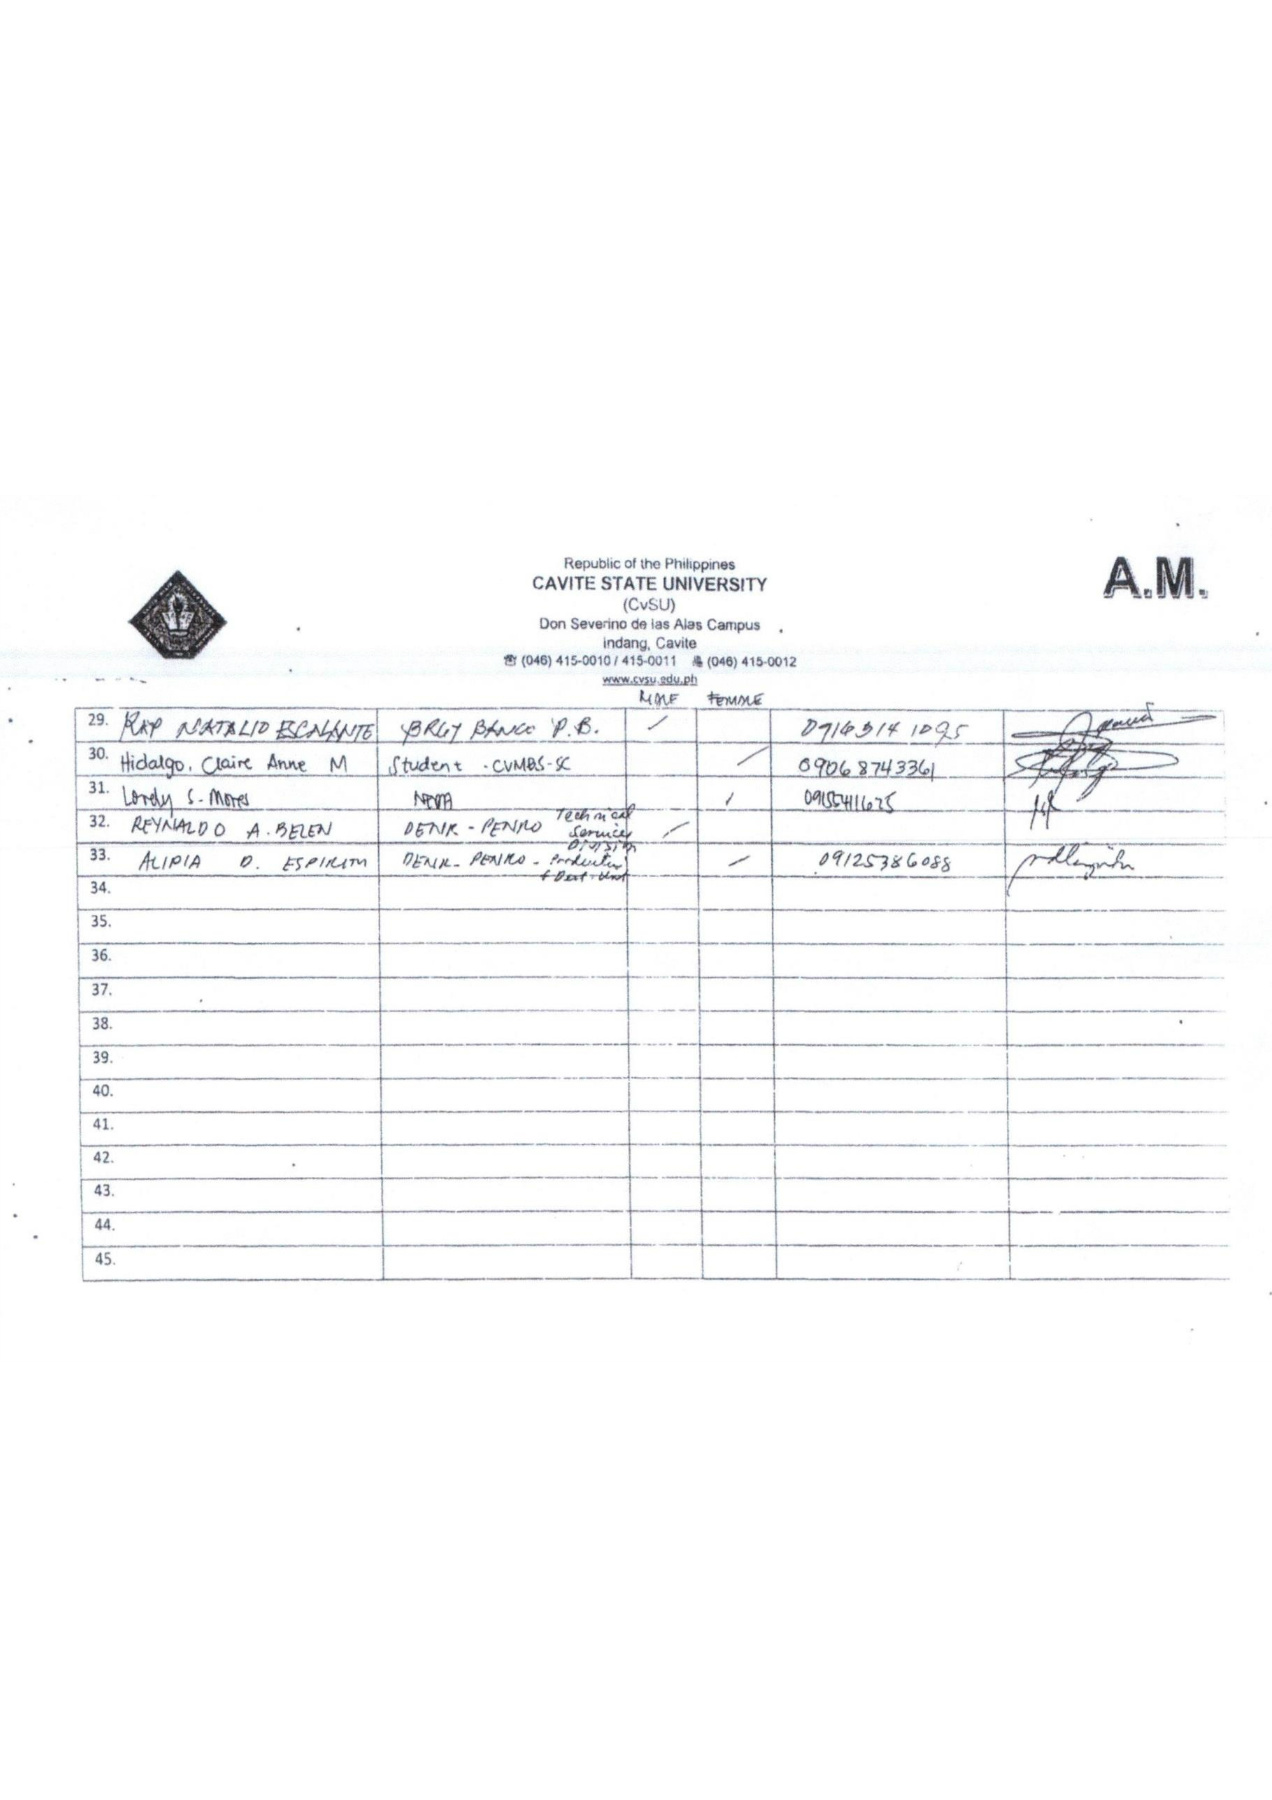 Republic of the Philippines
CAVITE STATE UNIVERSITY
(CvSU)
Don Severino de las Alas Campus
Indang, Cavite
☎ (046) 415-0010 / 415-0011 (046) 415-0012
www.cvsu.edu.ph
A.M.
MALE FEMALE
29. NATALIO ESCALANTE BRGY P.B. /
30. Hidalgo, Claire Anne M Student - CVMBS-SC / 09068743361
31. S. /
32. REYNALDO A. BELEN DENR - PENRO Technical Services Division /
33. ALIPIA D. ESPIRITU DENR - PENRO - / 09125386088
34.
35.
36.
37.
38.
39.
40.
41.
42.
43.
44.
45.